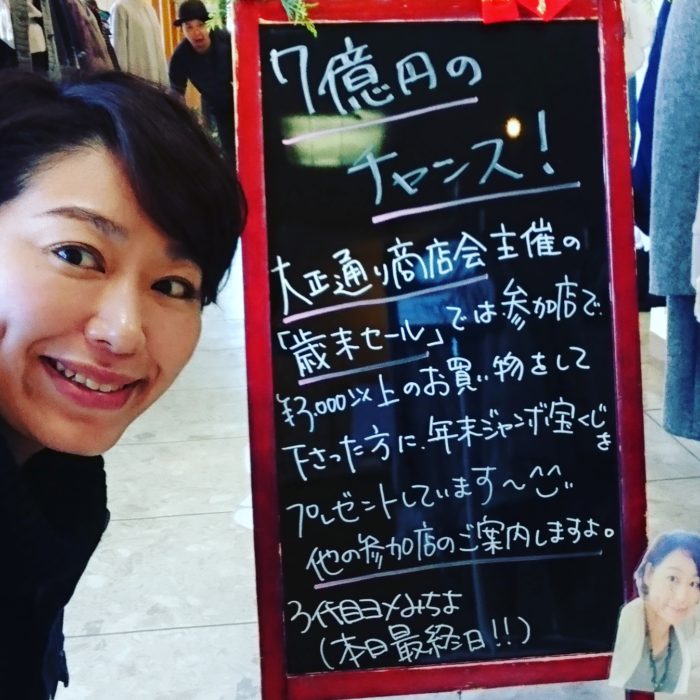 7億円の
チャンス!
大正通り商店会主催の
「歳末セール」では参加店で
¥3,000以上のお買い物をして
下さった方に、年末ジャンボ宝くじを
プレゼントしています〜^^
他の参加店のご案内しますよ。
3代目ヨメみちよ
(本日最終日!!)